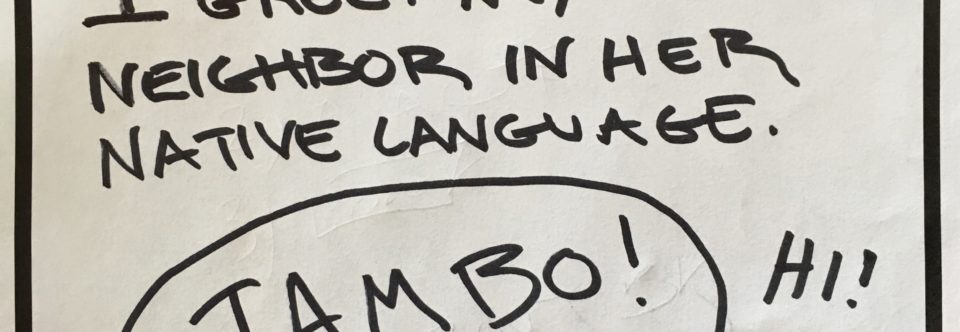 I GREET MY
NEIGHBOR IN HER
NATIVE LANGUAGE.
JAMBO!
HI!